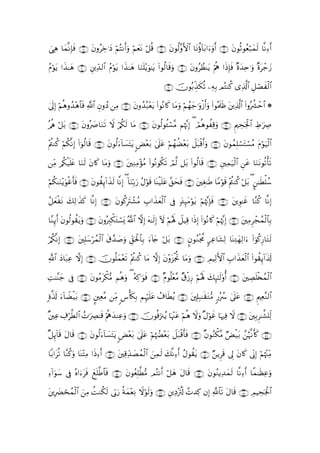 أَءِنَّا لَمَبْعُوثُونَ أَوَءَابَآؤُنَا ٱلْأَوَّلُونَ قُلْ نَعَمْ وَأَنتُمْ دَٰخِرُونَ فَإِنَّمَا هِىَ
زَجْرَةٌ وَٰحِدَةٌ فَإِذَا هُمْ يَنظُرُونَ وَقَالُوا۟ يَٰوَيْلَنَا هَٰذَا يَوْمُ ٱلدِّينِ هَٰذَا يَوْمُ
ٱلْفَصْلِ ٱلَّذِى كُنتُم بِهِۦ تُكَذِّبُونَ
۞ ٱحْشُرُوا۟ ٱلَّذِينَ ظَلَمُوا۟ وَأَزْوَٰجَهُمْ وَمَا كَانُوا۟ يَعْبُدُونَ مِن دُونِ ٱللَّهِ فَٱهْدُوهُمْ إِلَىٰ
صِرَٰطِ ٱلْجَحِيمِ وَقِفُوهُمْ إِنَّهُم مَّسْـُٔولُونَ مَا لَكُمْ لَا تَنَاصَرُونَ بَلْ هُمُ
ٱلْيَوْمَ مُسْتَسْلِمُونَ وَأَقْبَلَ بَعْضُهُمْ عَلَىٰ بَعْضٍ يَتَسَآءَلُونَ قَالُوٓا۟ إِنَّكُمْ كُنتُمْ
تَأْتُونَنَا عَنِ ٱلْيَمِينِ قَالُوا۟ بَل لَّمْ تَكُونُوا۟ مُؤْمِنِينَ وَمَا كَانَ لَنَا عَلَيْكُم مِّن
سُلْطَٰنٍۭ بَلْ كُنتُمْ قَوْمًا طَٰغِينَ فَحَقَّ عَلَيْنَا قَوْلُ رَبِّنَآ إِنَّا لَذَآئِقُونَ فَأَغْوَيْنَٰكُمْ
إِنَّا كُنَّا غَٰوِينَ فَإِنَّهُمْ يَوْمَئِذٍ فِى ٱلْعَذَابِ مُشْتَرِكُونَ إِنَّا كَذَٰلِكَ نَفْعَلُ
بِٱلْمُجْرِمِينَ إِنَّهُمْ كَانُوٓا۟ إِذَا قِيلَ لَهُمْ لَآ إِلَٰهَ إِلَّا ٱللَّهُ يَسْتَكْبِرُونَ وَيَقُولُونَ أَئِنَّا
لَتَارِكُوٓا۟ ءَالِهَتِنَا لِشَاعِرٍ مَّجْنُونٍۭ بَلْ جَآءَ بِٱلْحَقِّ وَصَدَّقَ ٱلْمُرْسَلِينَ إِنَّكُمْ
لَذَآئِقُوا۟ ٱلْعَذَابِ ٱلْأَلِيمِ وَمَا تُجْزَوْنَ إِلَّا مَا كُنتُمْ تَعْمَلُونَ إِلَّا عِبَادَ ٱللَّهِ
ٱلْمُخْلَصِينَ أُو۟لَٰٓئِكَ لَهُمْ رِزْقٌ مَّعْلُومٌ فَوَٰكِهُ وَهُم مُّكْرَمُونَ فِى جَنَّٰتِ
ٱلنَّعِيمِ عَلَىٰ سُرُرٍ مُّتَقَٰبِلِينَ يُطَافُ عَلَيْهِم بِكَأْسٍ مِّن مَّعِينٍۭ بَيْضَآءَ لَذَّةٍ
لِّلشَّٰرِبِينَ لَا فِيهَا غَوْلٌ وَلَا هُمْ عَنْهَا يُنزَفُونَ وَعِندَهُمْ قَٰصِرَٰتُ ٱلطَّرْفِ عِينٌ
كَأَنَّهُنَّ بَيْضٌ مَّكْنُونٌ فَأَقْبَلَ بَعْضُهُمْ عَلَىٰ بَعْضٍ يَتَسَآءَلُونَ قَالَ قَآئِلٌ
مِّنْهُمْ إِنِّى كَانَ لِى قَرِينٌ يَقُولُ أَءِنَّكَ لَمِنَ ٱلْمُصَدِّقِينَ أَءِذَا مِتْنَا وَكُنَّا تُرَابًا
وَعِظَٰمًا أَءِنَّا لَمَدِينُونَ قَالَ هَلْ أَنتُم مُّطَّلِعُونَ فَٱطَّلَعَ فَرَءَاهُ فِى سَوَآءِ
ٱلْجَحِيمِ قَالَ تَٱللَّهِ إِن كِدتَّ لَتُرْدِينِ وَلَوْلَا نِعْمَةُ رَبِّى لَكُنتُ مِنَ ٱلْمُحْضَرِينَ